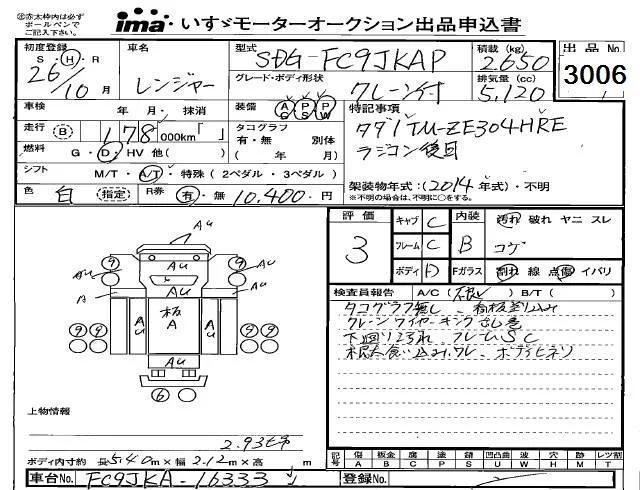 ㊟赤太枠内は必ず
ボールペンで
ご記入下さい。
ima・いすゞモーターオークション出品申込書
初度登録 車名 型式 積載(kg) 出品No.
S・H・R レンジャー SDG-FC9JKAP 2650 3006
26/10月 グレード・ボディ形状 クレーン付 排気量(cc) 5,120
車検 年 月・抹消 装備 AC PS PW 特記事項
走行 B 178 000km「 」 タコグラフ 有・無 別体 タダノTM-ZE304HRE
燃料 G・D・HV 他( ) ( 年 月) ラジコン後日
シフト M/T・A/T・特殊(2ペダル・3ペダル) 架装物年式:(2014年式)・不明
色 白 (指定) R券 有・無 10,400円 ※不明の場合は、不明に○をする。
評価 3 キャブ C 内装 B 汚れ 破れ ヤニ スレ
フレーム C コゲ
ボディ D Fガラス 割れ 線 点傷 イバリ
検査員報告 A/C( ) B/T( )
タコグラフ無し、看板切り込み
クレーンワイヤーキンク
下回りコサ汎、フレームSC
ボディヒネリ
Au
Au Au
9 9
Au Au Au
A Au A
9 9 Au 板 A Au 9 9
Au
6
上物情報
2.93t吊
ボディ内寸約 長5.40m×幅2.12m×高 m
記号 傷 A 板金 B 腐 C 塗 P 錆 S 凹凸曲 U 波 W 穴 H 跡 M 折 T レツ割
車台No. FC9JKA-16333 登録No.